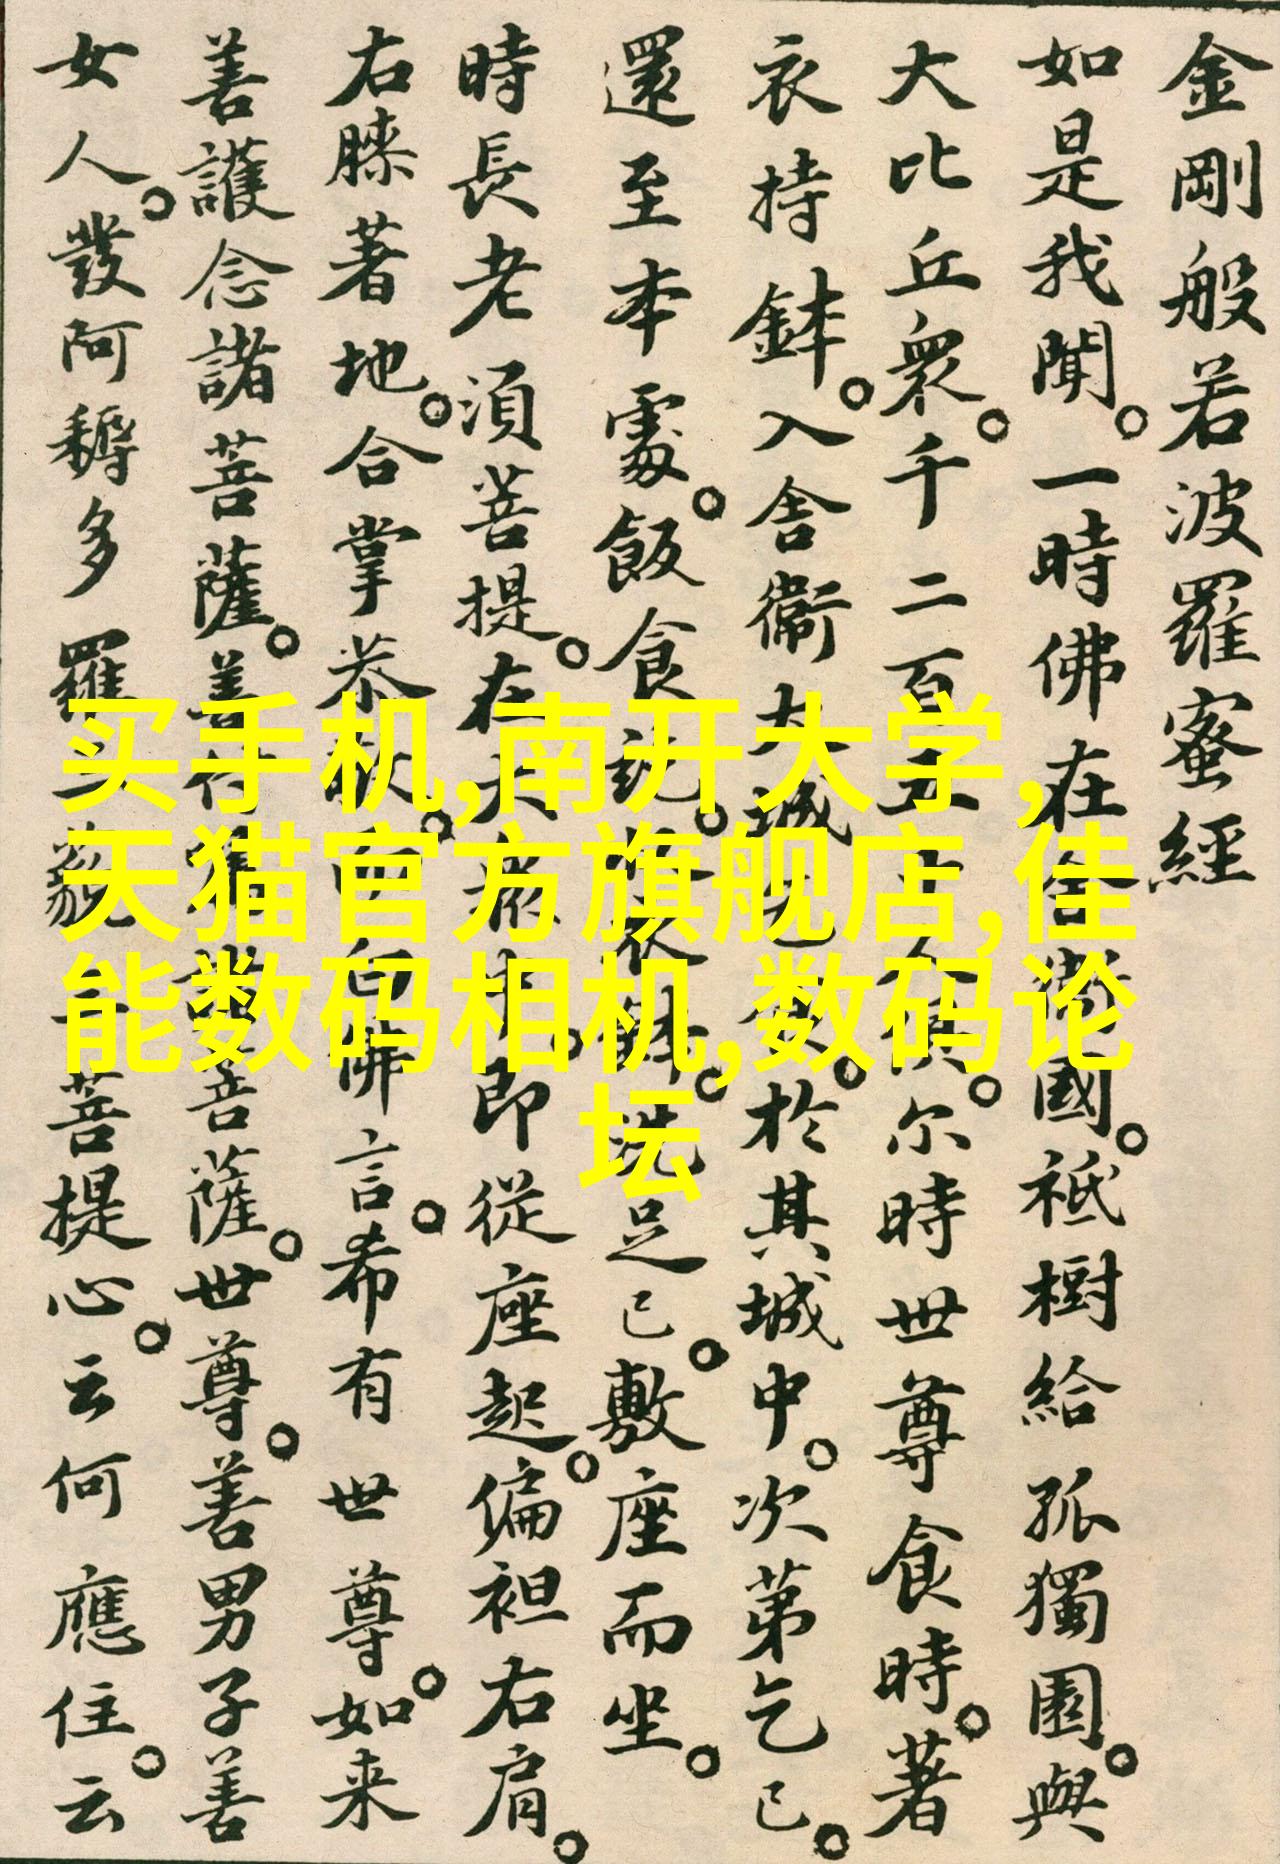 金剛般若波羅蜜經
如是我聞。一時佛在舍衛國。祇樹給孤獨園。與
大比丘衆。千二百五十人俱。尔時世尊食時。著
衣持鉢。入舍衞大城乞食。於其城中。次第乞已。
還至本處。飯食訖。收衣鉢。洗足已。敷座而坐。
時長老湏菩提。在大衆中。即從座起。偏袒右肩。
右膝著地。合掌恭敬。而白佛言。希有世尊。如来
善護念諸菩薩。善付囑諸菩薩。世尊。善男子善
女人。發阿耨多羅三藐三菩提心。云何應住。云
买手机,南开大学,
天猫官方旗舰店,佳
能数码相机,数码论
坛